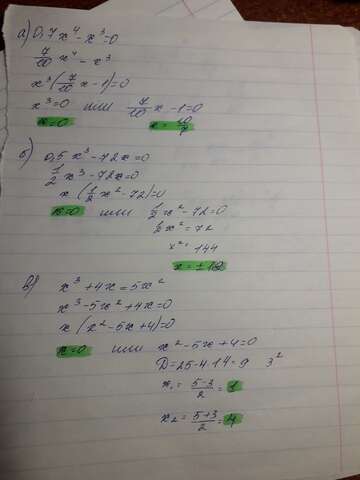 а) 0,7x⁴ - x³ = 0
7/10 x⁴ - x³
x³(7/10 x - 1) = 0
x³ = 0 или 7/10 x - 1 = 0
x = 0 x = 10/7
б) 0,5x³ - 72x = 0
1/2 x³ - 72x = 0
x(1/2 x² - 72) = 0
x = 0 или 1/2 x² - 72 = 0
1/2 x² = 72
x² = 144
x = ±12
в) x³ + 4x = 5x²
x³ - 5x² + 4x = 0
x(x² - 5x + 4) = 0
x = 0 или x² - 5x + 4 = 0
D = 25 - 4·1·4 = 9 3²
x₁ = (5-3)/2 = 1
x₂ = (5+3)/2 = 4